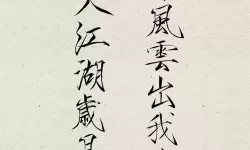 風雲出我
入江湖歲月